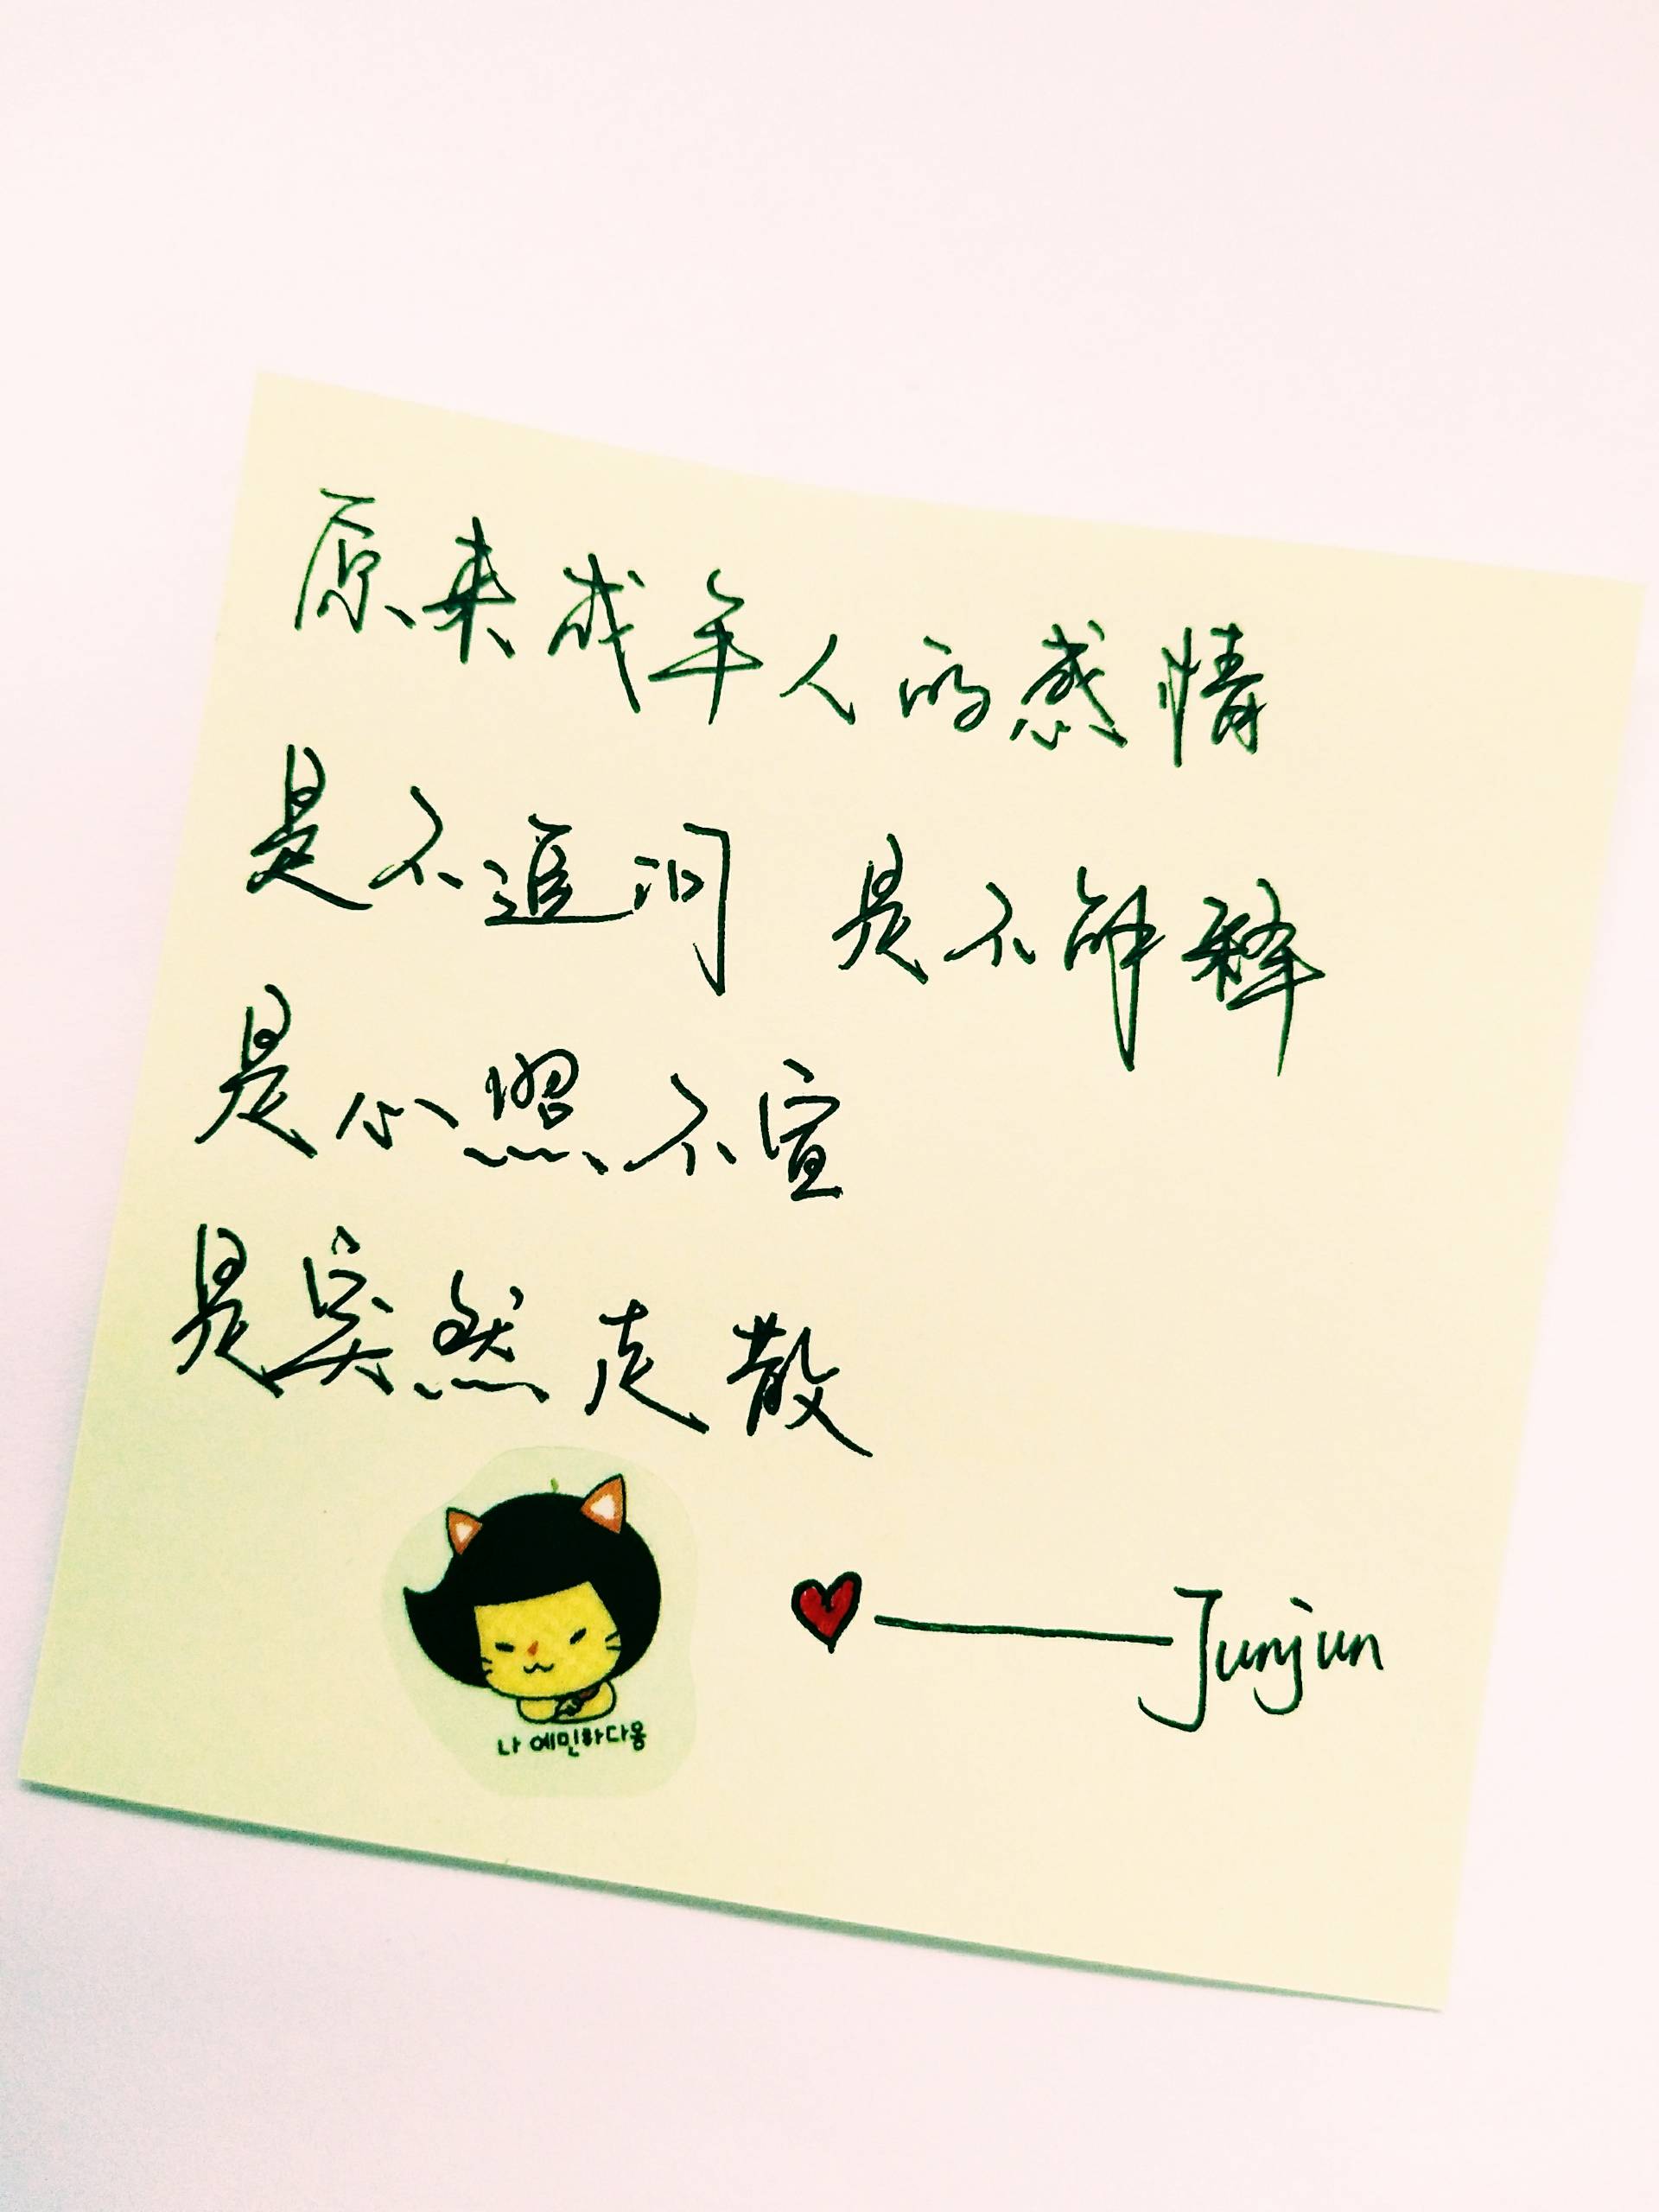 原来成年人的感情
是不追问 是不解释
是心照不宣
是突然走散
Junjun
나 예민하다옹